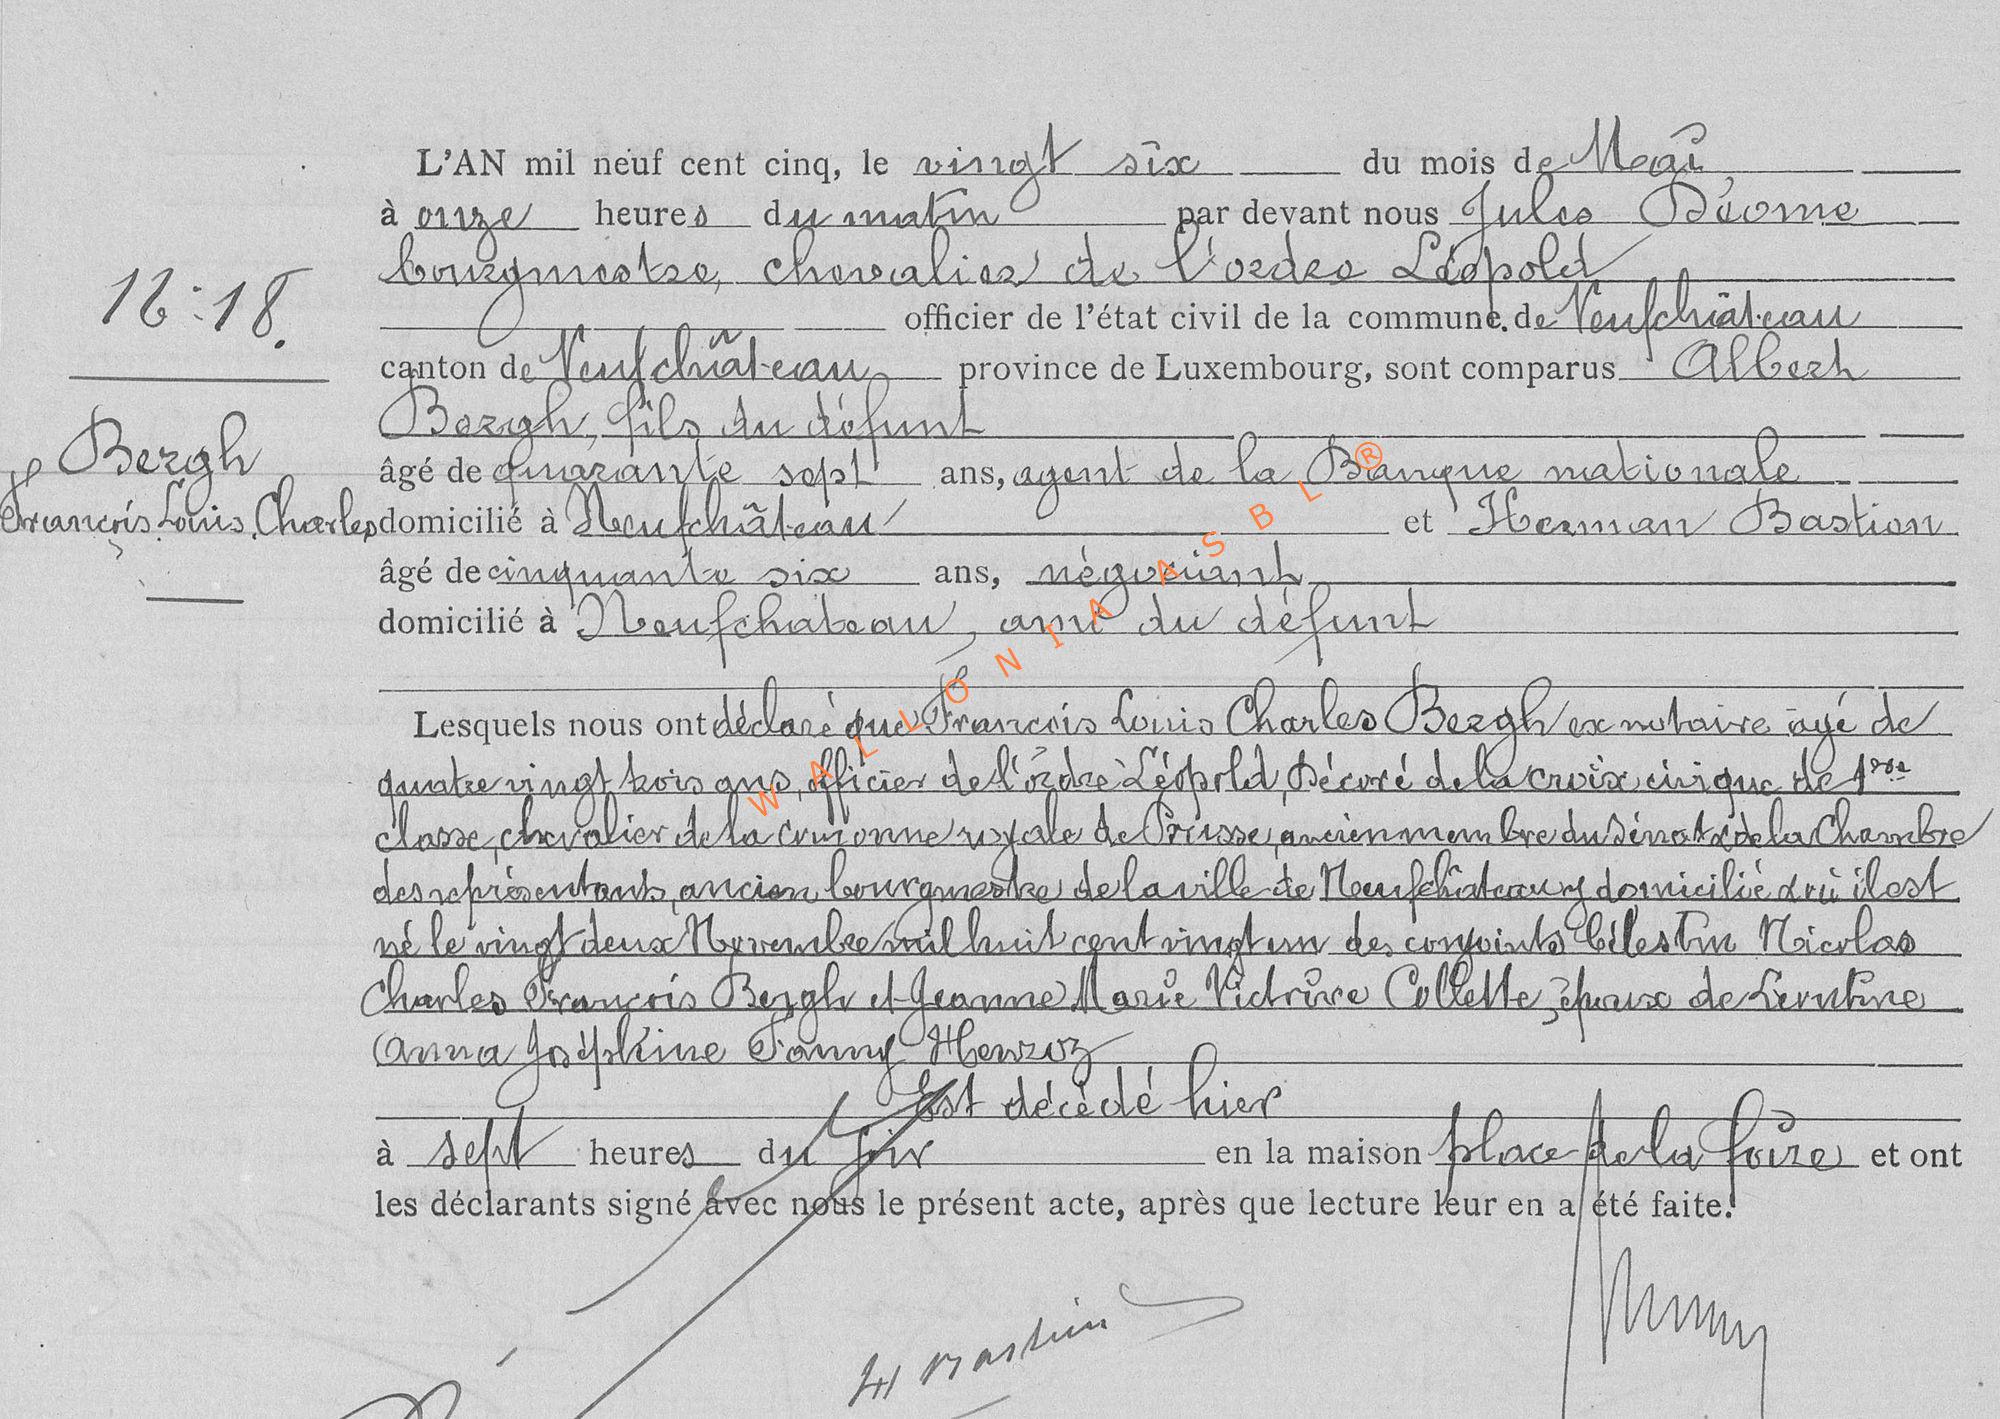 L'AN mil neuf cent cinq, le vingt six du mois de Mai,
à onze heures du matin par devant nous Jules Déome
bourgmestre, chevalier de l'ordre Léopold
officier de l'état civil de la commune de Neufchâteau
canton de Neufchâteau province de Luxembourg, sont comparus Albert
Bergh, fils du défunt
âgé de quarante sept ans, agent de la Banque nationale
domicilié à Neufchâteau et Herman Bastien
âgé de cinquante six ans, négociant
domicilié à Neufchateau, ami du défunt
Lesquels nous ont déclaré que François Louis Charles Bergh ex notaire âgé de
quatre vingt trois ans, officier de l'ordre Léopold, Décoré de la croix civique de 1ere
classe, chevalier de la couronne royale de Prusse, ancien membre du Sénat & de la Chambre
des représentants, ancien bourgmestre de la ville de Neufchâteau y domicilié & où il est
né le vingt deux Novembre mil huit cent vingt un des conjoints Célestin Nicolas
Charles François Bergh et Jeanne Marie Victoire Collette, époux de Léontine
Anna Joséphine Fanny Henroz
Est décédé hier
à sept heures du soir en la maison place de la foire et ont
les déclarants signé avec nous le présent acte, après que lecture leur en a été faite.
H Bastien
N:18.
Bergh
François Louis Charles
WALLONIA ASBL ®